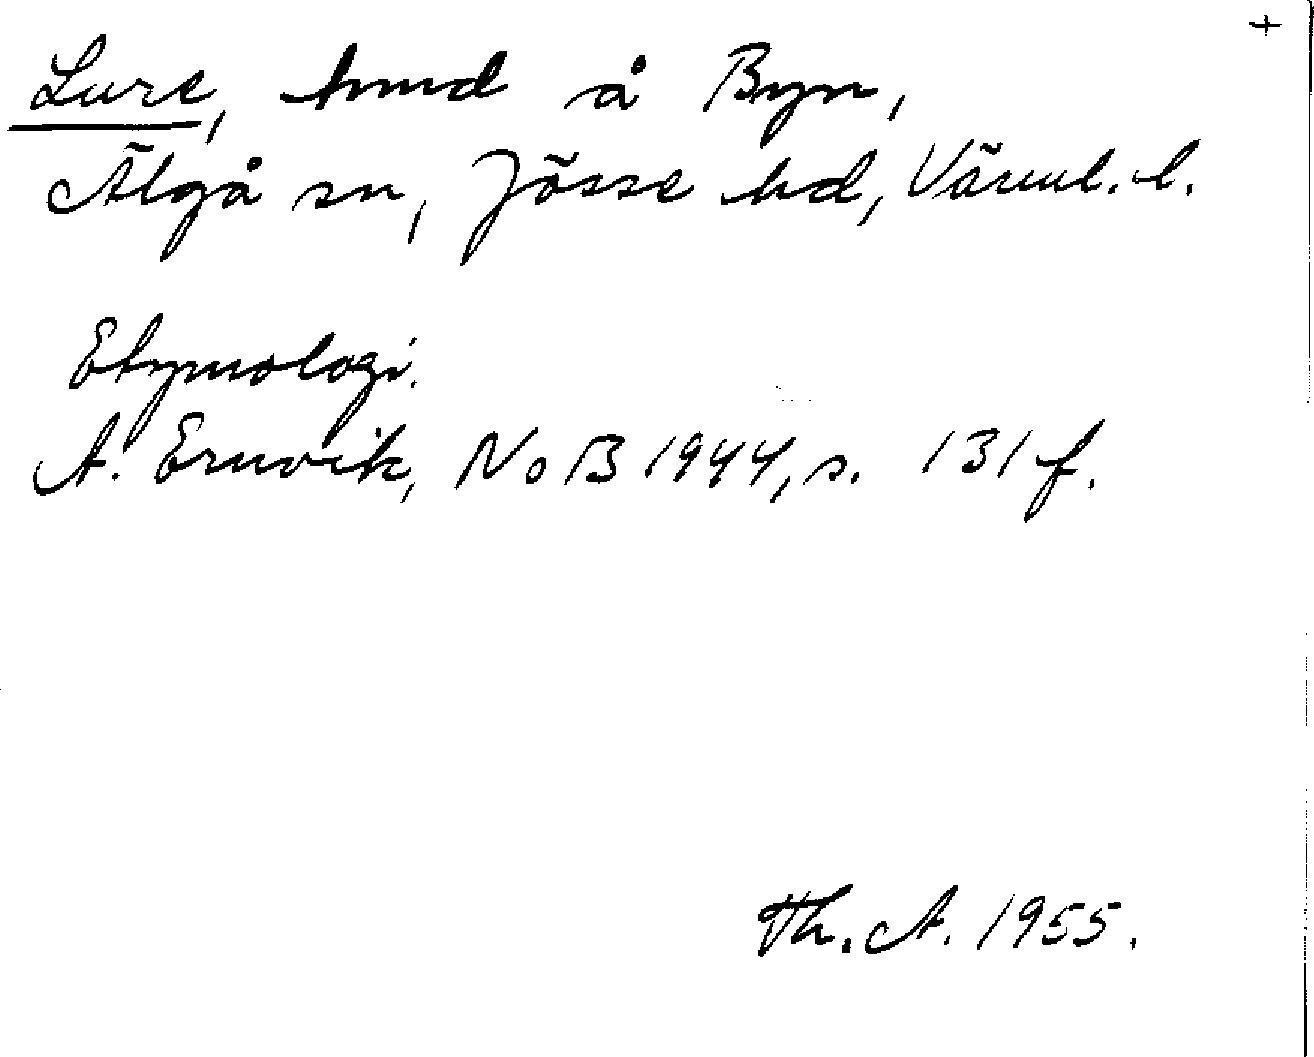 +
Lure, hmd å Byn,
Älgå sn, Jösse hd, Värml. l.
Etymologi.
A. Ernvik, NoB 1944, s. 131 f.
Th. A. 1955.